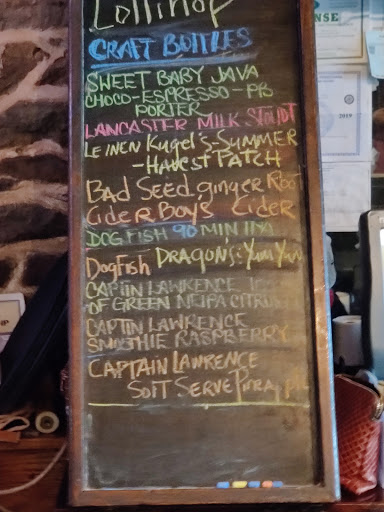 Lollihop
CRAFT BOTTLES
SWEET BABY JAVA
CHOCO-ESPRESSO-PB
PORTER
LANCASTER MILK STOUT
LEINENKugel's-SUMMER
-HAVEST PATCH
BAD SEED gingER ROOT
CiDER BOYS CiDER
DOGFISH 90 MIN IPA
DogFish DRAGONS: YUM YUM
CAPTIN LAWRENCE
OF GREEN NEIPA CITRU
CAPTIN LAWRENCE
SMOOTHIE RASPBERRY
CAPTAIN LAWRENCE
SOFT SERVE
ENSE
2019